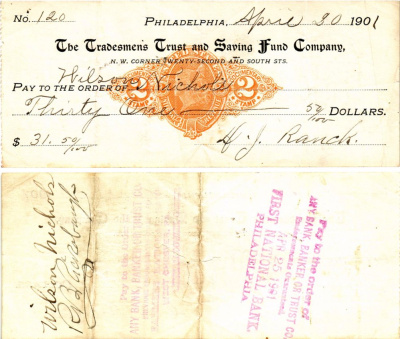 No. 120 PHILADELPHIA, April 30 1901
The Tradesmen's Trust and Saving Fund Company,
N. W. CORNER TWENTY-SECOND AND SOUTH STS.
PAY TO THE ORDER OF Wilson Nichols
Thirty One 50/100 DOLLARS.
$ 31. 50/100 H. J. Ranck.
2 2
Wilson Nichols
Pay to the order of
ANY BANK, BANKER OR TRUST CO.
FIRST NATIONAL BANK
PHILADELPHIA